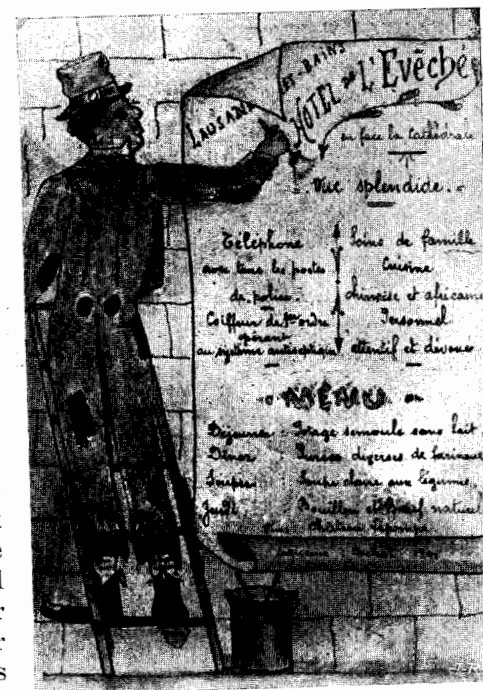 LAUSANNE-LES-BAINS
HOTEL DE L'EVÊCHÉ
en face la cathédrale
Vue splendide.
Téléphone
avec tous les postes
de police.
Coiffeur de 1er ordre
opérant
au système antiseptique
Soins de famille
Cuisine
chinoise et africaine
Personnel
attentif et dévoué
MENU
Déjeuner : Potage semoule sans lait
Dîner : Purées diverses de farineux
Souper : Soupe claire aux légumes
Jeudi : Bouillon et Bœuf naturel